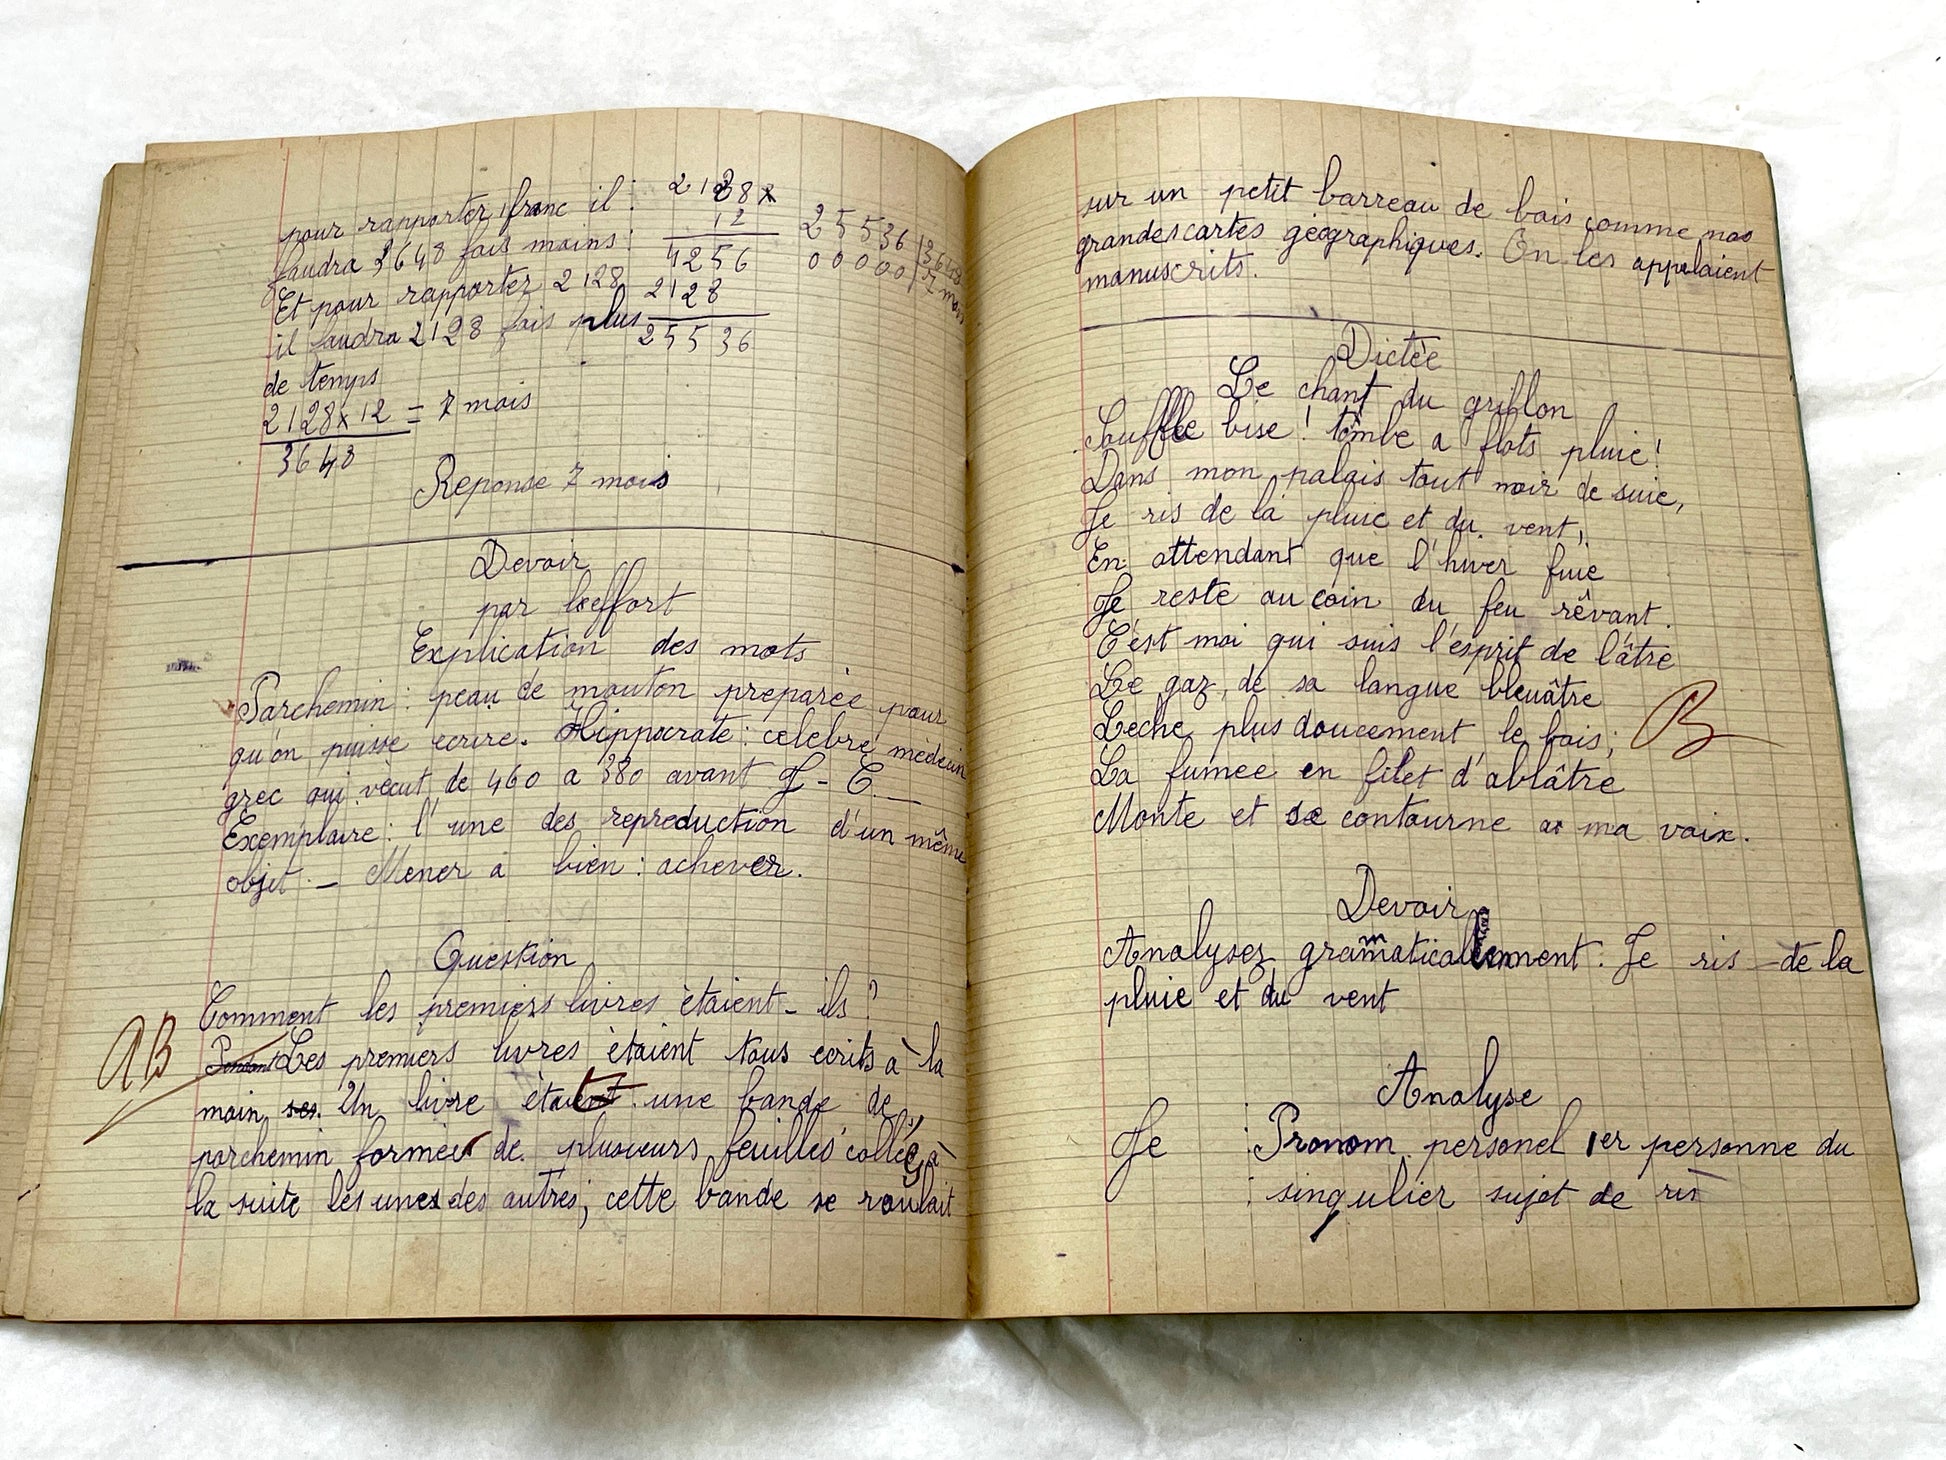 pour rapporter 1 franc il :
faudra 3648 fois moins :
Et pour rapporter 2128
il faudra 2128 fois plus
de temps
2128 x 12 = 7 mois
3648
2128 x
12
4256
2128
25536
25536 | 3648
00000 | 7 mois
Reponse 7 mois
Devoir
par l'effort
Explication des mots
Parchemin : peau de mouton preparée pour
qu'on puisse ecrire. Hippocrate : celebre médecin
grec qui vècut de 460 a 380 avant J - C
Exemplaire : l'une des repreduction d'un même
objet. - Mener a bien : achever.
Question
Comment les premiers livres ètaient - ils ?
Les premiers livres ètaient tous ecrits à la
main, Un livre ètait une bande de
parchemin formée de plusieurs feuilles collées à
la suite les unes des autres ; cette bande se roulait
AB
sur un petit barreau de bois comme nos
grandes cartes géographiques. On les appelaient
manuscrits.
Dictèe
Le chant du grillon
Souffle bise ! tombe a flots pluie !
Dans mon palais tout noir de suie,
Je ris de la pluie et du vent,
En attendant que l'hiver fuie
Je reste au coin du feu rêvant.
C'est moi qui suis l'esprit de l'âtre
Le gaz, de sa langue bleuâtre
Leche plus doucement le bois ;
La fumee en filet d'ablâtre
Monte et se contourne a ma voix.
B
Devoir
Analysez grammaticalement : Je ris de la
pluie et du vent
Analyse
Je : Pronom personel 1er personne du
: singulier sujet de ris